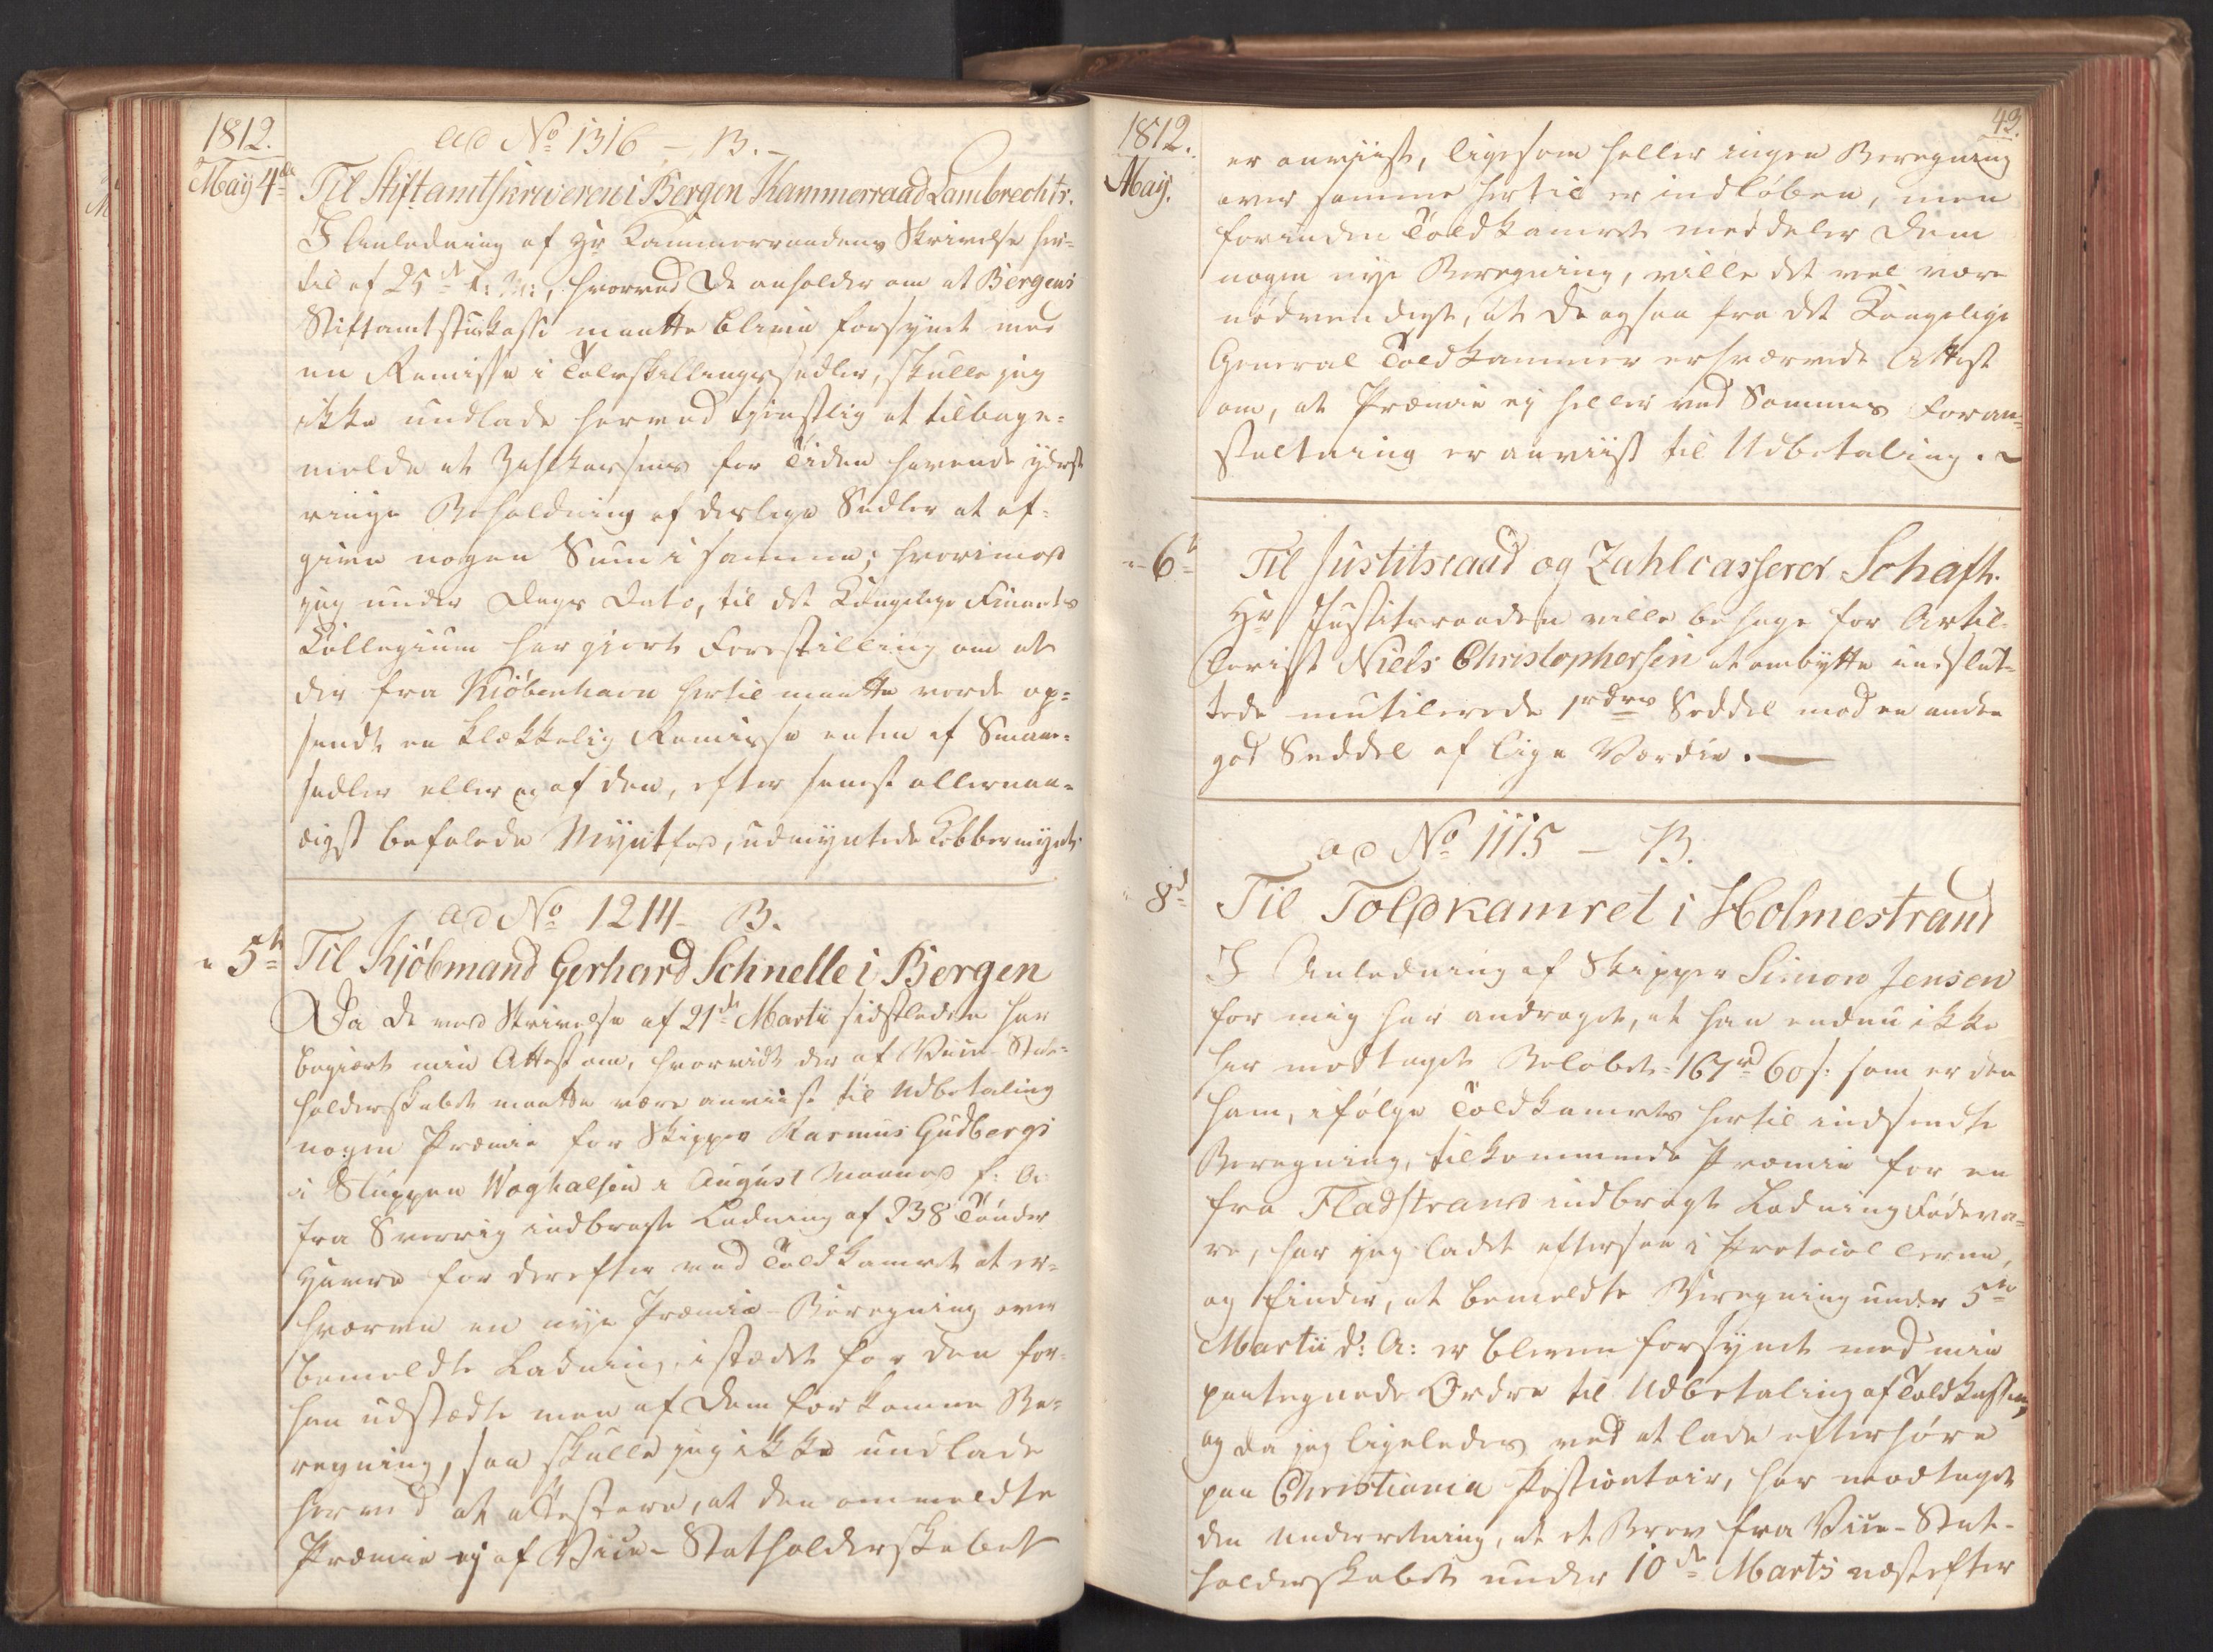 1812.
ad No 1316 – B. –
May 4de
Til Stiftamtskriveren i Bergen Kammerraad Lambrechts.
I Anledning af Hr Kammerraadens Skrivelse her=
til af 25de f: M:, hvorved De anholder om at Bergens
Stiftamtstuekasse maatte blive forsynet med
en Remisse i Tolvskillingssedler, skulle jeg
ikke undlade herved tjenstlig at tilbage=
melde at Zahlkassens for Tiden havende yderst
ringe Beholdning af deslige Sedler at af=
give nogen Sum i samme; hvorimod
jeg under Dags Dato, til det Kongelige Finants
Collegium har giort Forestilling om at
der fra Kiöbenhavn hertil maatte vorde op=
sendt en klækkelig Remisse enten af Smaae=
sedler eller og af den, efter senest allernaa=
digst befalede Myntfod, udmyntede Kobbermynt.
ad No 1214 – B.
" 5te
Til Kjöbmand Gerhard Schnelle i Bergen
Da De ved Skrivelse af 21de Martii sidstleden har
begiert min Attest om, hvorvidt der af Vice-Stat=
holderskabet maatte være anviist til Udbetaling
nogen Præmie for Skipper Rasmus Gudbergs
i Sluppen Woghalsen i August Maaned f: A:
fra Sverrig indbragte Ladning af 238 Tönder
for derefter ved Toldkamret at er=
hverve en nye Præmie-Beregning over
bemeldte Ladning, istædet for den for=
hen udstædte men af Dem forkomne Be=
regning, saa skulle jeg ikke undlade
herved at attestere, at den ommeldte
Præmie ej af Vice-Statholderskabet
43.
1812.
May.
er anviist, ligesom heller ingen Beregning
over samme hertil er indlöben, men
forinden Toldkamret meddeler Dem
nogen nye Beregning, ville det vel være
nödvendigt, at De ogsaa fra det Kongelige
General Toldkammer erhvervede Attest
om, at Præmie ej heller ved Sammes Foran=
staltning er anviist til Udbetaling. –
" 6te
Til Justitsraad og Zahlcasserer Schaft.
Hr Justitsraaden ville behage for Artil=
lerist Niels Christophersen at ombytte indslut=
tede mutilerede 1rdrs Seddel mod en anden
god Seddel af lige Værdie. —
ad No 1115 – B.
" 8de
Til Toldkamret i Holmestrand
I Anledning af Skipper Simon Jensen
for mig har andraget, at han endnu ikke
har modtaget Belöbet 167rd 60s: som er den
ham, ifölge Toldkamrets hertil indsendte
Beregning, tilkommende Præmie for en
fra Fladstrand indbragt Ladning Födeva=
re, har jeg ladet eftersee i Protocollerne,
og finder, at bemeldte Beregning under 5te
Martii d: A: er bleven forsynet med min
paategnede Ordre til Udbetaling af Toldkassen,
og da jeg ligeledes ved at lade efterhöre
paa Christiania Postcontoir, har modtaget
den Underretning, at et Brev fra Vice-Stat=
holderskabet under 10de Marts næstefter